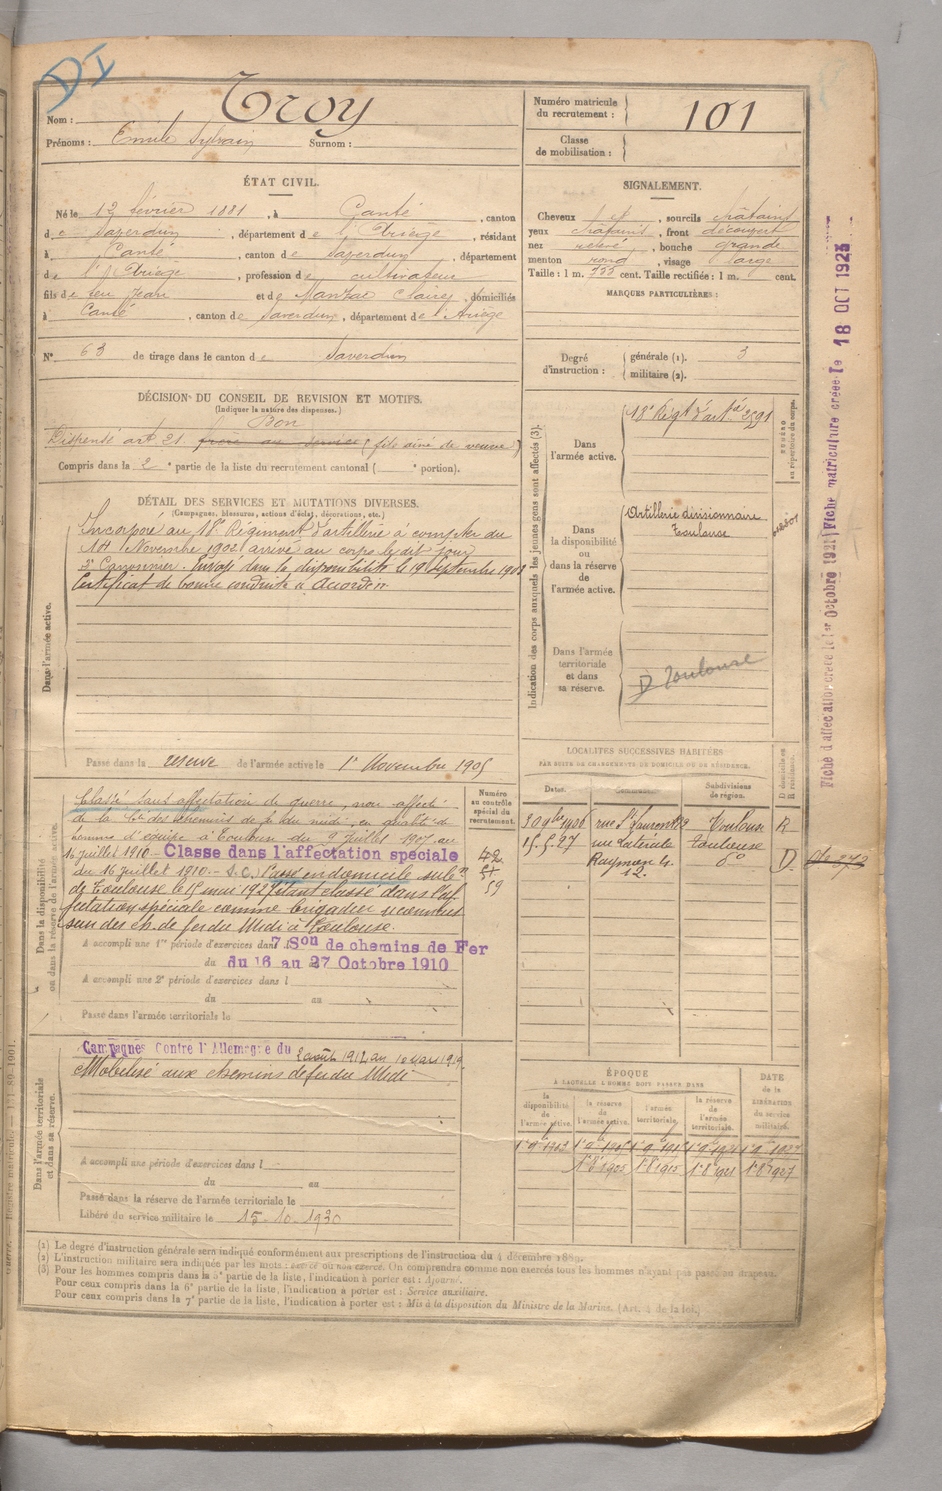 DI
Nom : Troy
Prénoms : Emile Sylvain Surnom :
Numéro matricule du recrutement : 101
Classe de mobilisation :
ÉTAT CIVIL.
Né le 12 février 1881, à Canté, canton
de Saverdun, département de l'Ariège, résidant
à Canté, canton de Saverdun, département
de l'Ariège, profession de cultivateur
fils de feu Jean et de Claire, domiciliés
à Canté, canton de Saverdun, département de l'Ariège
N° 63 de tirage dans le canton de Saverdun
SIGNALEMENT.
Cheveux et, sourcils châtains
yeux châtains, front découvert
nez relevé, bouche grande
menton rond, visage large
Taille : 1 m. cent. Taille rectifiée : 1 m. cent.
MARQUES PARTICULIÈRES :
Degré d'instruction : générale (1). 3
militaire (2).
DÉCISION DU CONSEIL DE REVISION ET MOTIFS.
(Indiquer la nature des dispenses.)
Bon
Dispensé art. 21. frère au service (fils aîné de veuve)
Compris dans la 2e partie de la liste du recrutement cantonal ( e portion).
DÉTAIL DES SERVICES ET MUTATIONS DIVERSES.
(Campagnes, blessures, actions d'éclat, décorations, etc.)
Dans l'armée active.
Incorporé au 18e Régiment d'artillerie à compter du
14 Novembre 1902 arrivé au corps le dit jour
2e Canonnier. Envoyé dans la disponibilité le 19 Septembre 1903
Certificat de bonne conduite « Accordé »
Passé dans la réserve de l'armée active le 1er Novembre 1905
Indication des corps auxquels les jeunes gens sont affectés (3).
Dans l'armée active.
18e Régt d'artie 2591
NUMÉRO au répertoire du corps.
Dans la disponibilité ou dans la réserve de l'armée active.
Artillerie divisionnaire
Toulouse
Dans l'armée territoriale et dans sa réserve.
D Toulouse
LOCALITÉS SUCCESSIVES HABITÉES
PAR SUITE DE CHANGEMENTS DE DOMICILE OU DE RÉSIDENCE.
Dates. Communes. Subdivisions de région. D domicile ou R résidence.
rue St Laurent 2 Toulouse R
15.5.27 rue Latérale Toulouse
12. do D.
Dans la disponibilité ou dans la réserve de l'armée active.
Numéro au contrôle spécial du recrutement.
Classé sans affectation de guerre, non affecté
de la Cie des chemins de fer du midi, en qualité de
homme d'équipe à Toulouse du 9 Juillet 1907 au
16 juillet 1910 - Classe dans l'affectation spéciale
du 16 juillet 1910 - S.C. Passé en domicile subdn
de Toulouse le 15 mai 1927 étant classé dans l'af-
fectation spéciale comme brigadier
son des ch. de fer du Midi à Toulouse.
A accompli une 1re période d'exercices dans 7 Son de chemins de Fer
du 16 au 27 Octobre 1910
A accompli une 2e période d'exercices dans l
du au
Passé dans l'armée territoriale le
Dans l'armée territoriale et dans sa réserve.
Campagnes Contre l'Allemagne du 2 août 1914 au 10 Mars 1919
Mobilisé aux chemins de fer du Midi
A accompli une période d'exercices dans l
du au
Passé dans la réserve de l'armée territoriale le
Libéré du service militaire le 15-10-1930
ÉPOQUE
À LAQUELLE L'HOMME DOIT PASSER DANS
la disponibilité de l'armée active. la réserve de l'armée active. l'armée territoriale. la réserve de l'armée territoriale.
DATE de la LIBÉRATION du service militaire.
(1) Le degré d'instruction générale sera indiqué conformément aux prescriptions de l'instruction du 4 décembre 1889.
(2) L'instruction militaire sera indiquée par les mots : exercé ou non exercé. On comprendra comme non exercés tous les hommes n'ayant pas passé au drapeau.
(3) Pour les hommes compris dans la 5e partie de la liste, l'indication à porter est : Ajourné.
Pour ceux compris dans la 6e partie de la liste, l'indication à porter est : Service auxiliaire.
Pour ceux compris dans la 7e partie de la liste, l'indication à porter est : Mis à la disposition du Ministre de la Marine. (Art. 4 de la loi.)
Fiche matriculaire créée le 18 OCT 1925